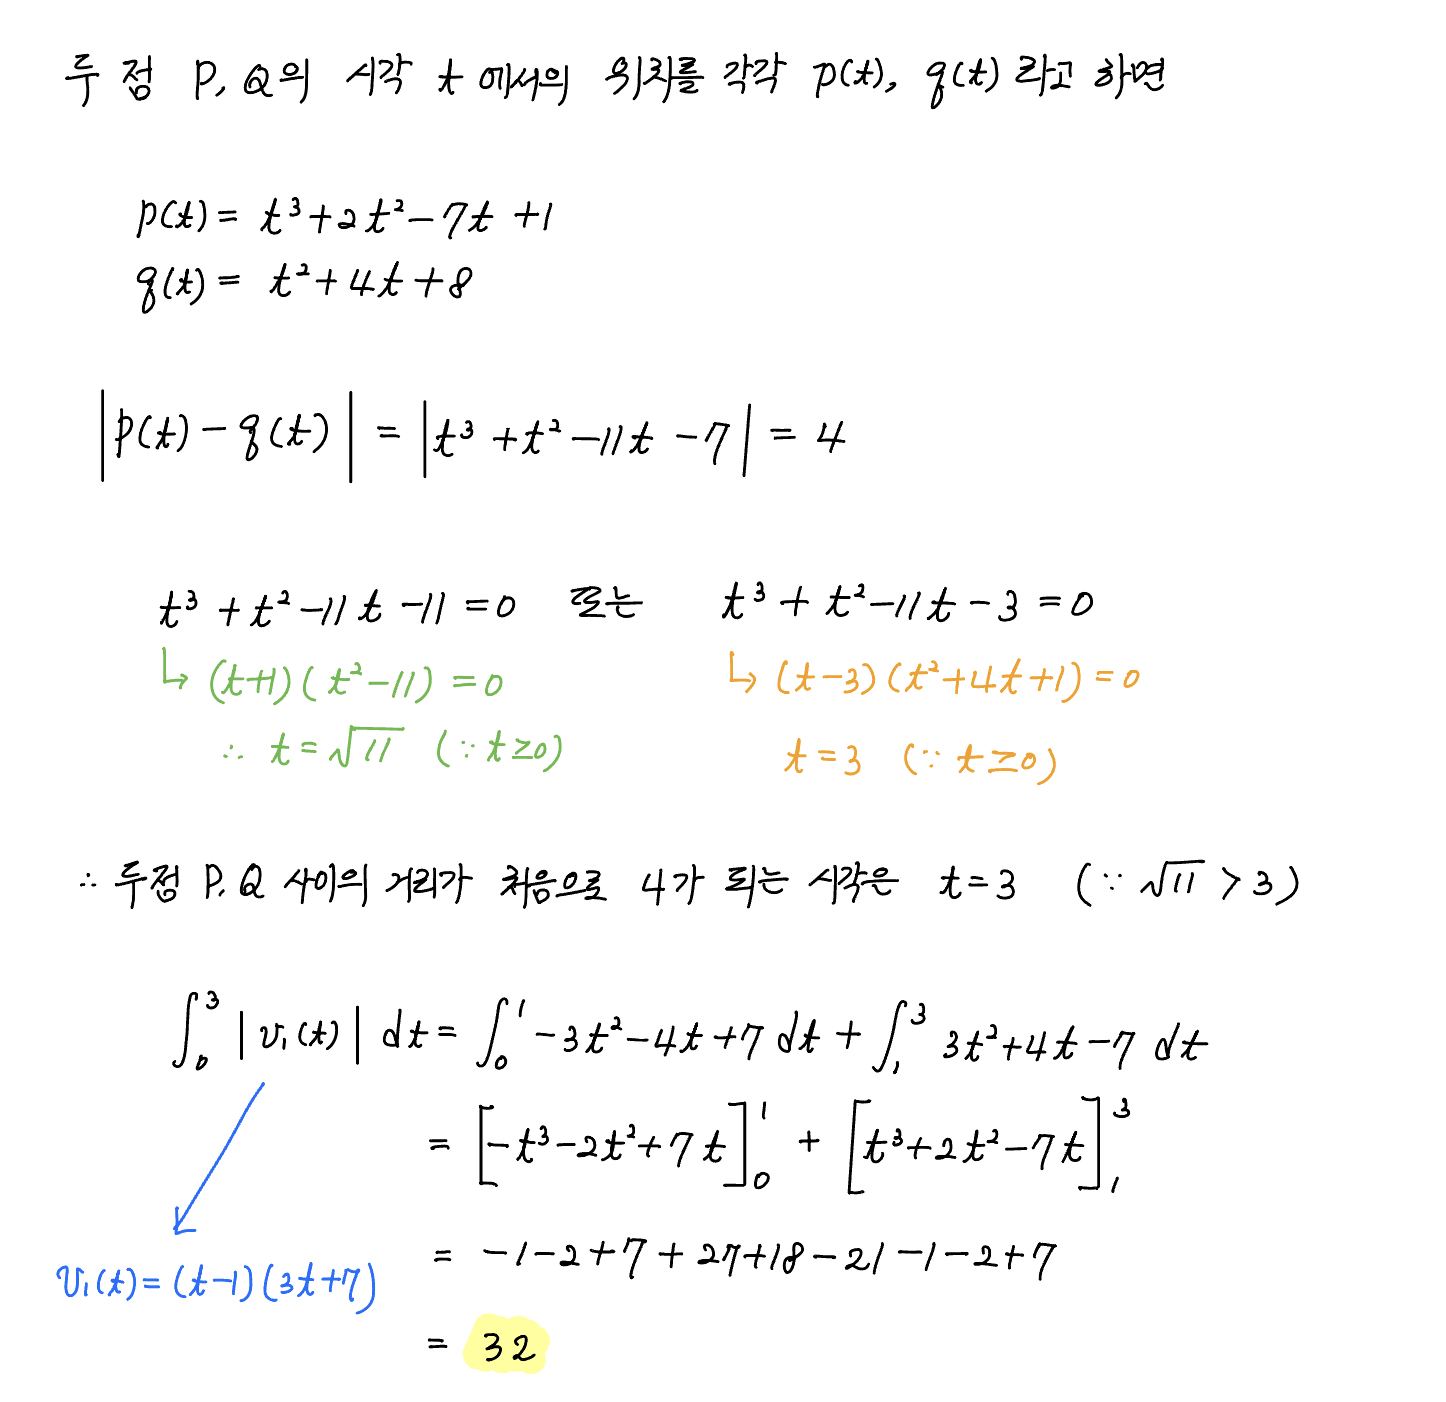 두 점 P, Q의 시각 t 에서의 위치를 각각 p(t), q(t) 라고 하면
p(t) = t³+2t²-7t+1
q(t) = t²+4t+8
|p(t)-q(t)| = |t³+t²-11t-7| = 4
t³+t²-11t-11=0 또는 t³+t²-11t-3=0
↳ (t+1)(t²-11)=0 ↳ (t-3)(t²+4t+1)=0
∴ t=√11 (∵ t≥0) t=3 (∵ t≥0)
∴ 두 점 P, Q 사이의 거리가 처음으로 4가 되는 시각은 t=3 (∵ √11 > 3)
∫₀³ |v₁(t)| dt = ∫₀¹ -3t²-4t+7 dt + ∫₁³ 3t²+4t-7 dt
= [-t³-2t²+7t]₀¹ + [t³+2t²-7t]₁³
= -1-2+7+27+18-21-1-2+7
v₁(t)=(t-1)(3t+7)
= 32